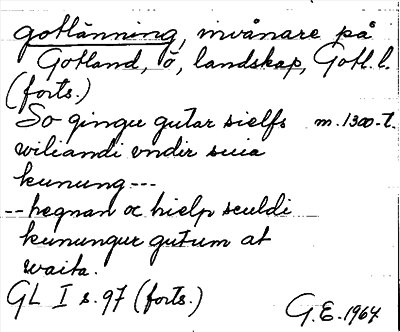 gotlänning, invånare på
Gotland, ö, landskap, Gotl.l.
(forts.)
So gingu gutar sielfs m. 1300-t.
wiliandi vndir suia
kunung---
--hegnan oc hielp sculdi
kunungur gutum at
waita.
GL I s. 97 (forts.)
G.E. 1964